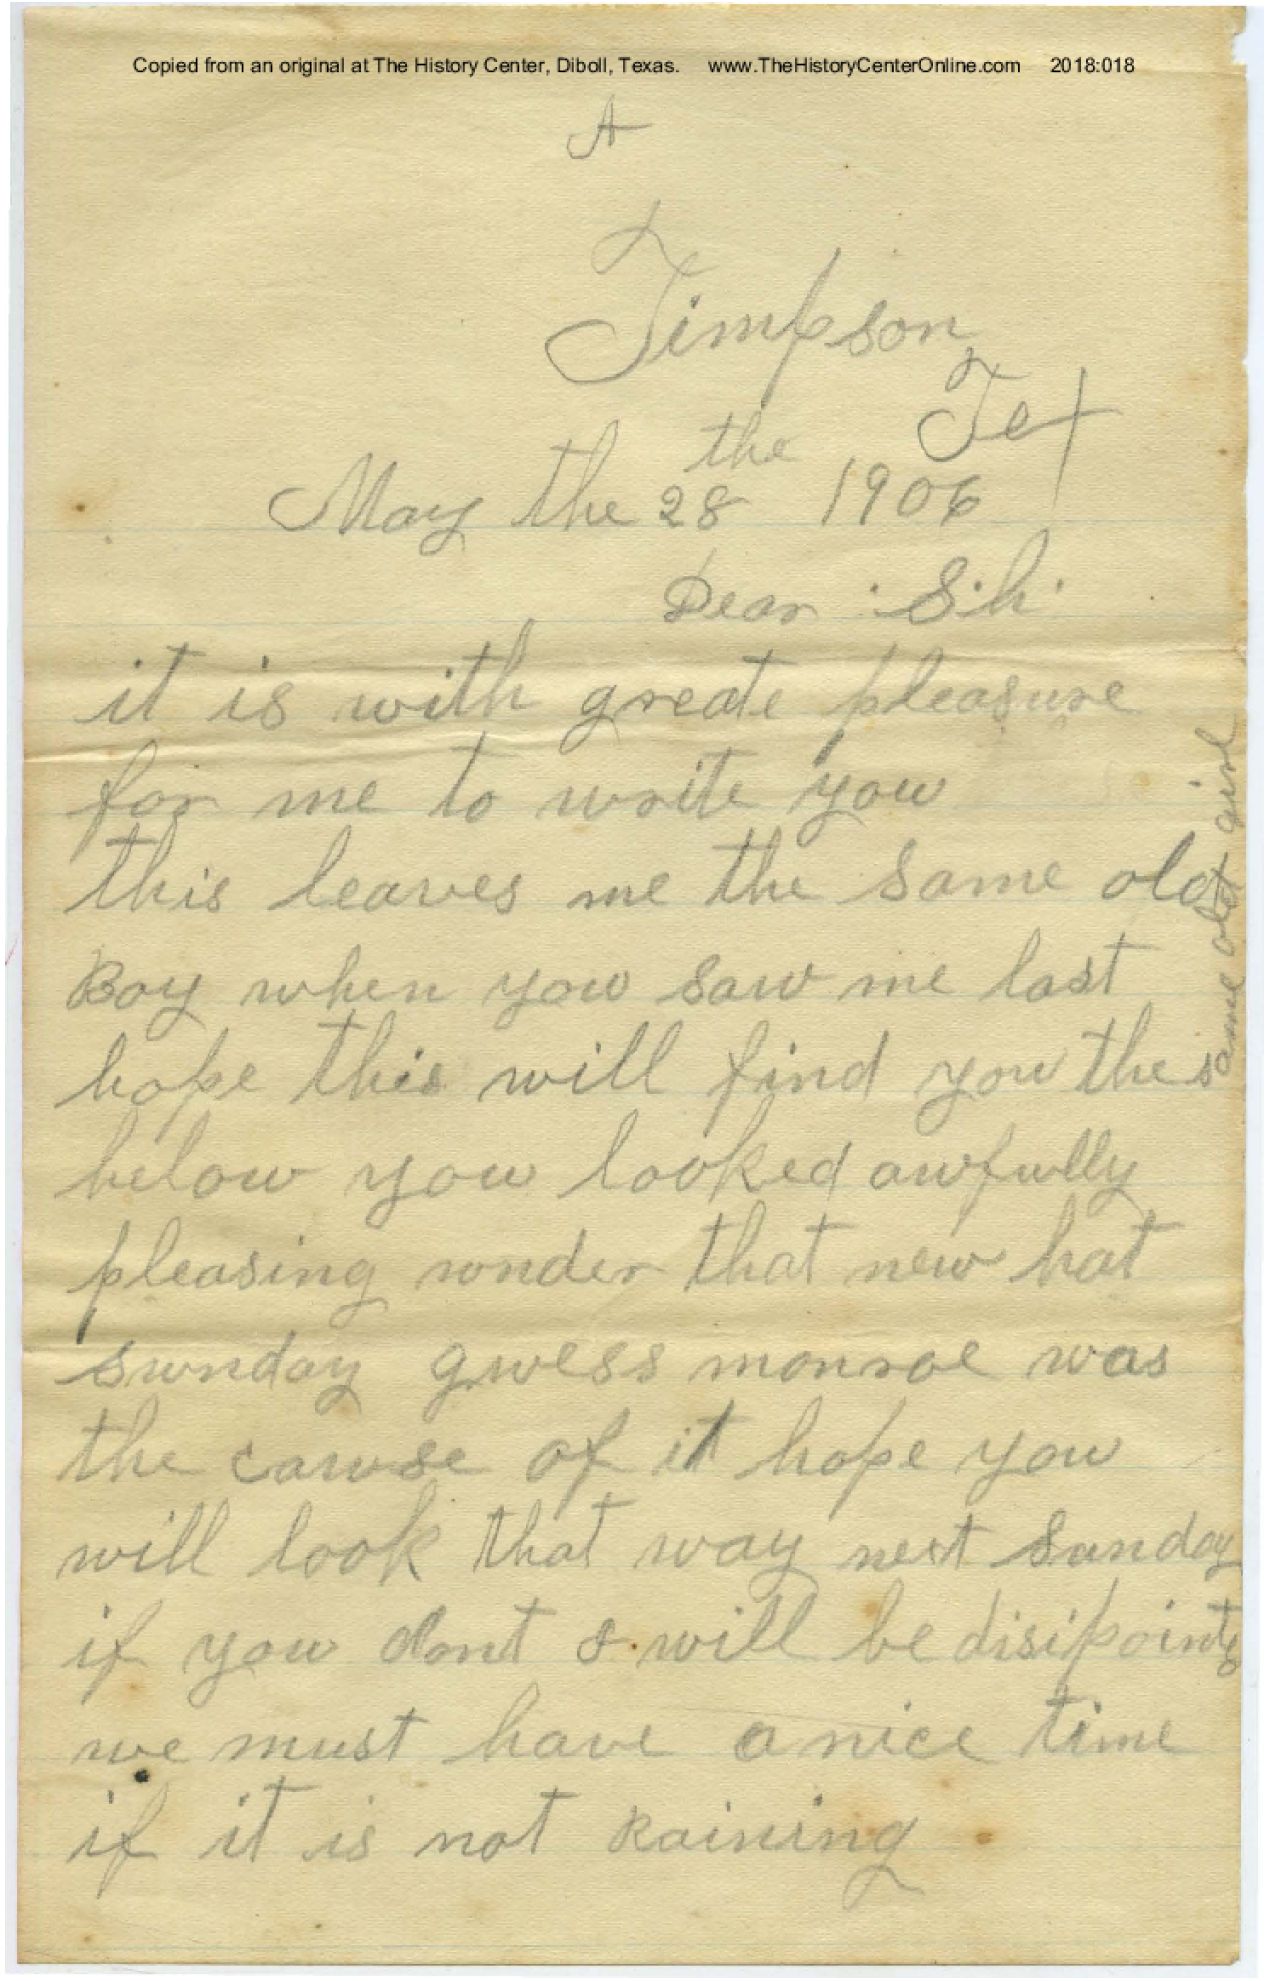 Copied from an original at The History Center, Diboll, Texas. www.TheHistoryCenterOnline.com 2018:018
A
Timpson
Tex
the
May the 28 1906
Dear S.h.
it is with greate pleasure
for me to write you
this leaves me the same old
Boy when you saw me last
hope this will find you the same old girl
below you looked awfully
pleasing under that new hat
sunday guess monroe was
the cause of it hope you
will look that way next Sunday
if you dont I will be disipointe
we must have a nice time
if it is not Raining